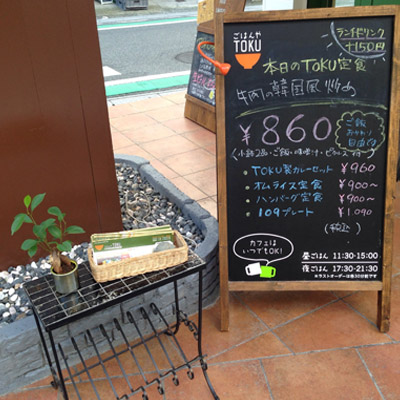 ごはんや
TOKU
ランチドリンク
+150円
本日のTOKU定食
牛肉の韓国風炒め
¥860
ご飯
おかわり
自由です
(小鉢2品・ご飯・味噌汁・ピクルス付)
・TOKU製カレーセット ¥960
・オムライス定食 ¥900〜
・ハンバーグ定食 ¥900〜
・109プレート ¥1,090
(税込)
カフェは
いつでもOK!
昼ごはん 11:30-15:00
夜ごはん 17:30-21:30
※ラストオーダーは各30分前です
TOKU